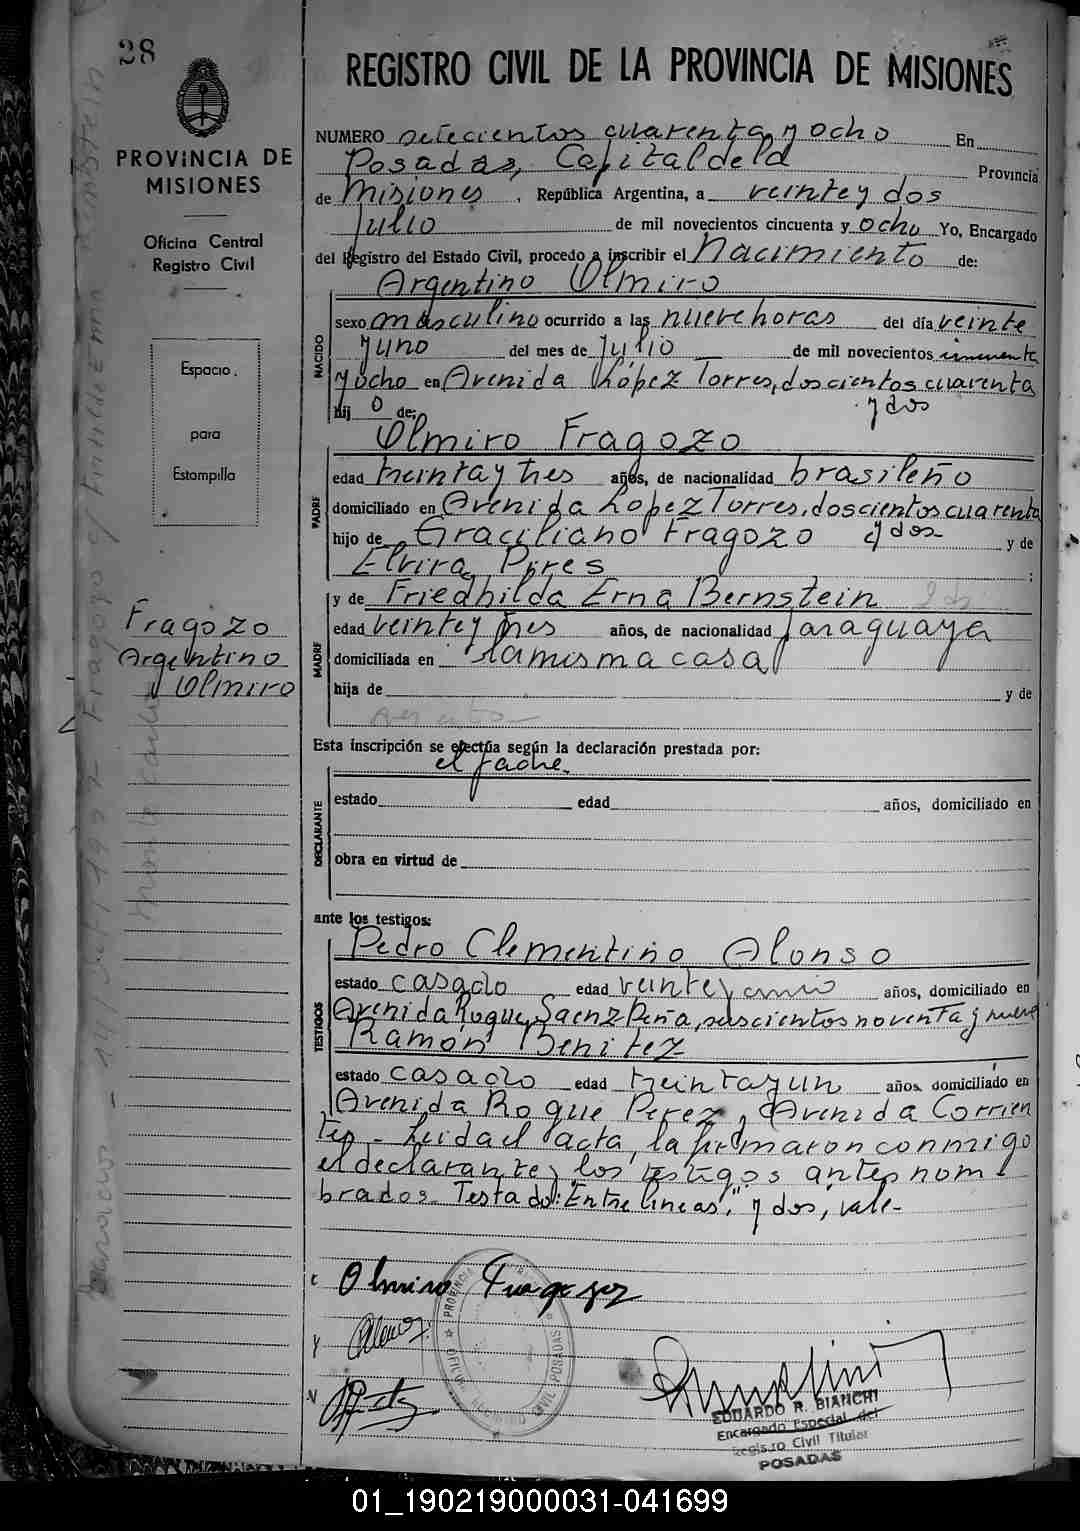 28
PROVINCIA DE
MISIONES
Oficina Central
Registro Civil
Espacio
para
Estampilla
Fragozo
Argentino
Olmiro
REGISTRO CIVIL DE LA PROVINCIA DE MISIONES
NUMERO setecientos cuarenta y ocho En
Posadas, Capital de la Provincia
de Misiones, República Argentina, a veinte y dos
Julio de mil novecientos cincuenta y ocho Yo, Encargado
del Registro del Estado Civil, procedo a inscribir el Nacimiento de:
NACIDO
Argentino Olmiro
sexo masculino ocurrido a las nueve horas del día veinte
y uno del mes de Julio de mil novecientos cincuenta
y ocho en Avenida López Torres, doscientos cuarenta
y dos
hij o de:
Olmiro Fragozo
PADRE
edad treinta y tres años, de nacionalidad brasileño
domiciliado en Avenida Lopez Torres, doscientos cuarenta
hijo de Graciliano Fragozo y dos y de
Elvira Pires ;
y de Friedhilda Erna Bernstein
MADRE
edad veinte y tres años, de nacionalidad paraguaya
domiciliada en la misma casa
hija de y de
Esta inscripción se efectúa según la declaración prestada por:
el padre.
DECLARANTE
estado edad años, domiciliado en
obra en virtud de
ante los testigos:
TESTIGOS
Pedro Clementino Alonso
estado casado edad veinte y años, domiciliado en
Avenida Roque Saenz Peña, seiscientos noventa y nueve
Ramón Benitez
estado casado edad treinta y un años, domiciliado en
Avenida Roque Perez, Avenida Corrien
tes - Leida el acta, la firmaron conmigo
el declarante y los testigos antes nom
brados. Testado: Entre lineas: "y dos", vale-
Olmiro Fragozo
PROVINCIA
POSADAS
EDUARDO R. BIANCHI
Encargado Especial del
Registro Civil Titular
POSADAS
01_190219000031-041699